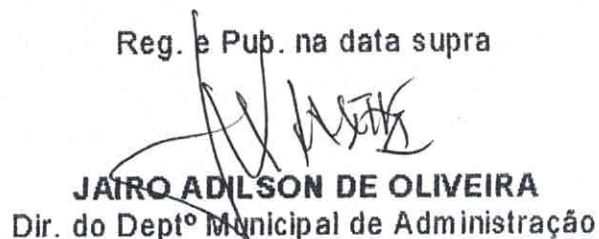 Reg. e Pub. na data supra
JAIRO ADILSON DE OLIVEIRA
Dir. do Deptº Municipal de Administração